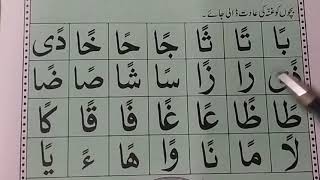 بچوں کو غنہ کی عادت ڈالی جائے۔
بًا تًا ثًا جًا حًا خًا دًى
ذًى رًا زًا سًا شًا صًا ضًا
طًا ظًا عًا غًا فًا قًا كًا
لًا مًا نًا وًا هًا ءً يًا